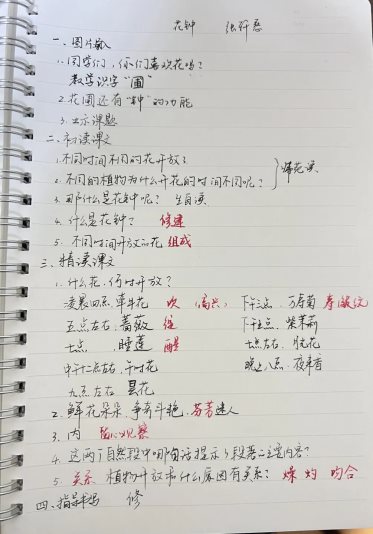 花钟
一、图片
1.同学们，你们喜欢花吗？
教学识字"圃"
2.花圃还有"钟"的功能
3.出示课题
二、初读课文
1.不同时间不同的花开放了
2.不同的植物为什么开花的时间不同呢？
3.那什么是花钟呢？ 生自读
4.什么是花钟？ 修建
5.不同时间开放的花 组成
三、精读课文
1.什么花，何时开放？
凌晨四点 牵牛花 吹 下午三点 万寿菊
五点左右，蔷薇 绽 下午五点，紫茉莉
七点，睡莲 醒 七点左右，月光花
中午十二点左右，午时花 晚上八点，夜来香
九点左右 昙花
2.鲜花朵朵，争奇斗艳，芬芳迷人
3.内 留心观察
4.这两个自然段中哪句话提示了段落的主要内容？
5.关系 植物开放和什么原因有关系？ 燥 灼 吻合
四、指导书写 修